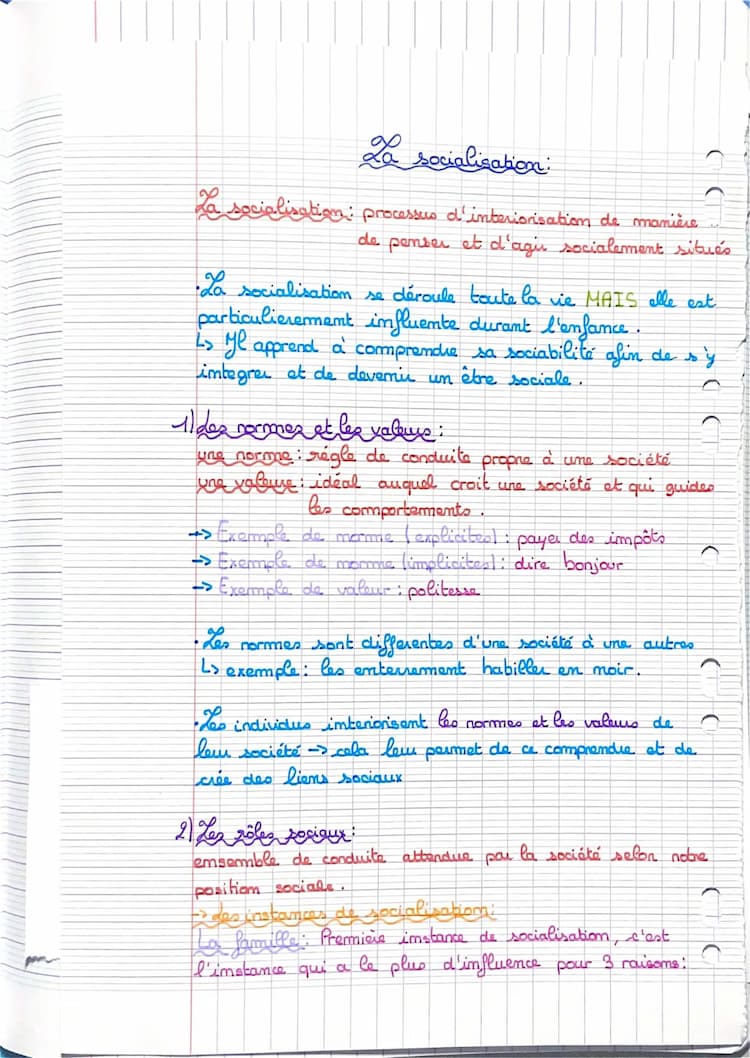 La socialisation:
La socialisation: processus d'interiorisation de manière
de penser et d'agir socialement situés
• La socialisation se déroule toute la vie MAIS elle est
particulierement influente durant l'enfance.
↳ Il apprend à comprendre sa sociabilité afin de s'y
integrer et de devenir un être sociale.
1) Les normes et les valeurs:
une norme: régle de conduite propre à une société
une valeur: idéal auquel croit une société et qui guides
les comportements.
-> Exemple de norme (explicites): payer des impôts
-> Exemple de norme (implicites): dire bonjour
-> Exemple de valeur: politesse
• Les normes sont differentes d'une société à une autres
↳ exemple: les enterrement habiller en noir.
• Les individus interiorisent les normes et les valeurs de
leur société -> cela leur permet de ce comprendre et de
crée des liens sociaux
2) Les rôles sociaux:
ensemble de conduite attendue par la société selon notre
position sociale.
-> Les instances de socialisation:
La famille: Première instance de socialisation, c'est
l'instance qui a le plus d'influence pour 3 raisons: